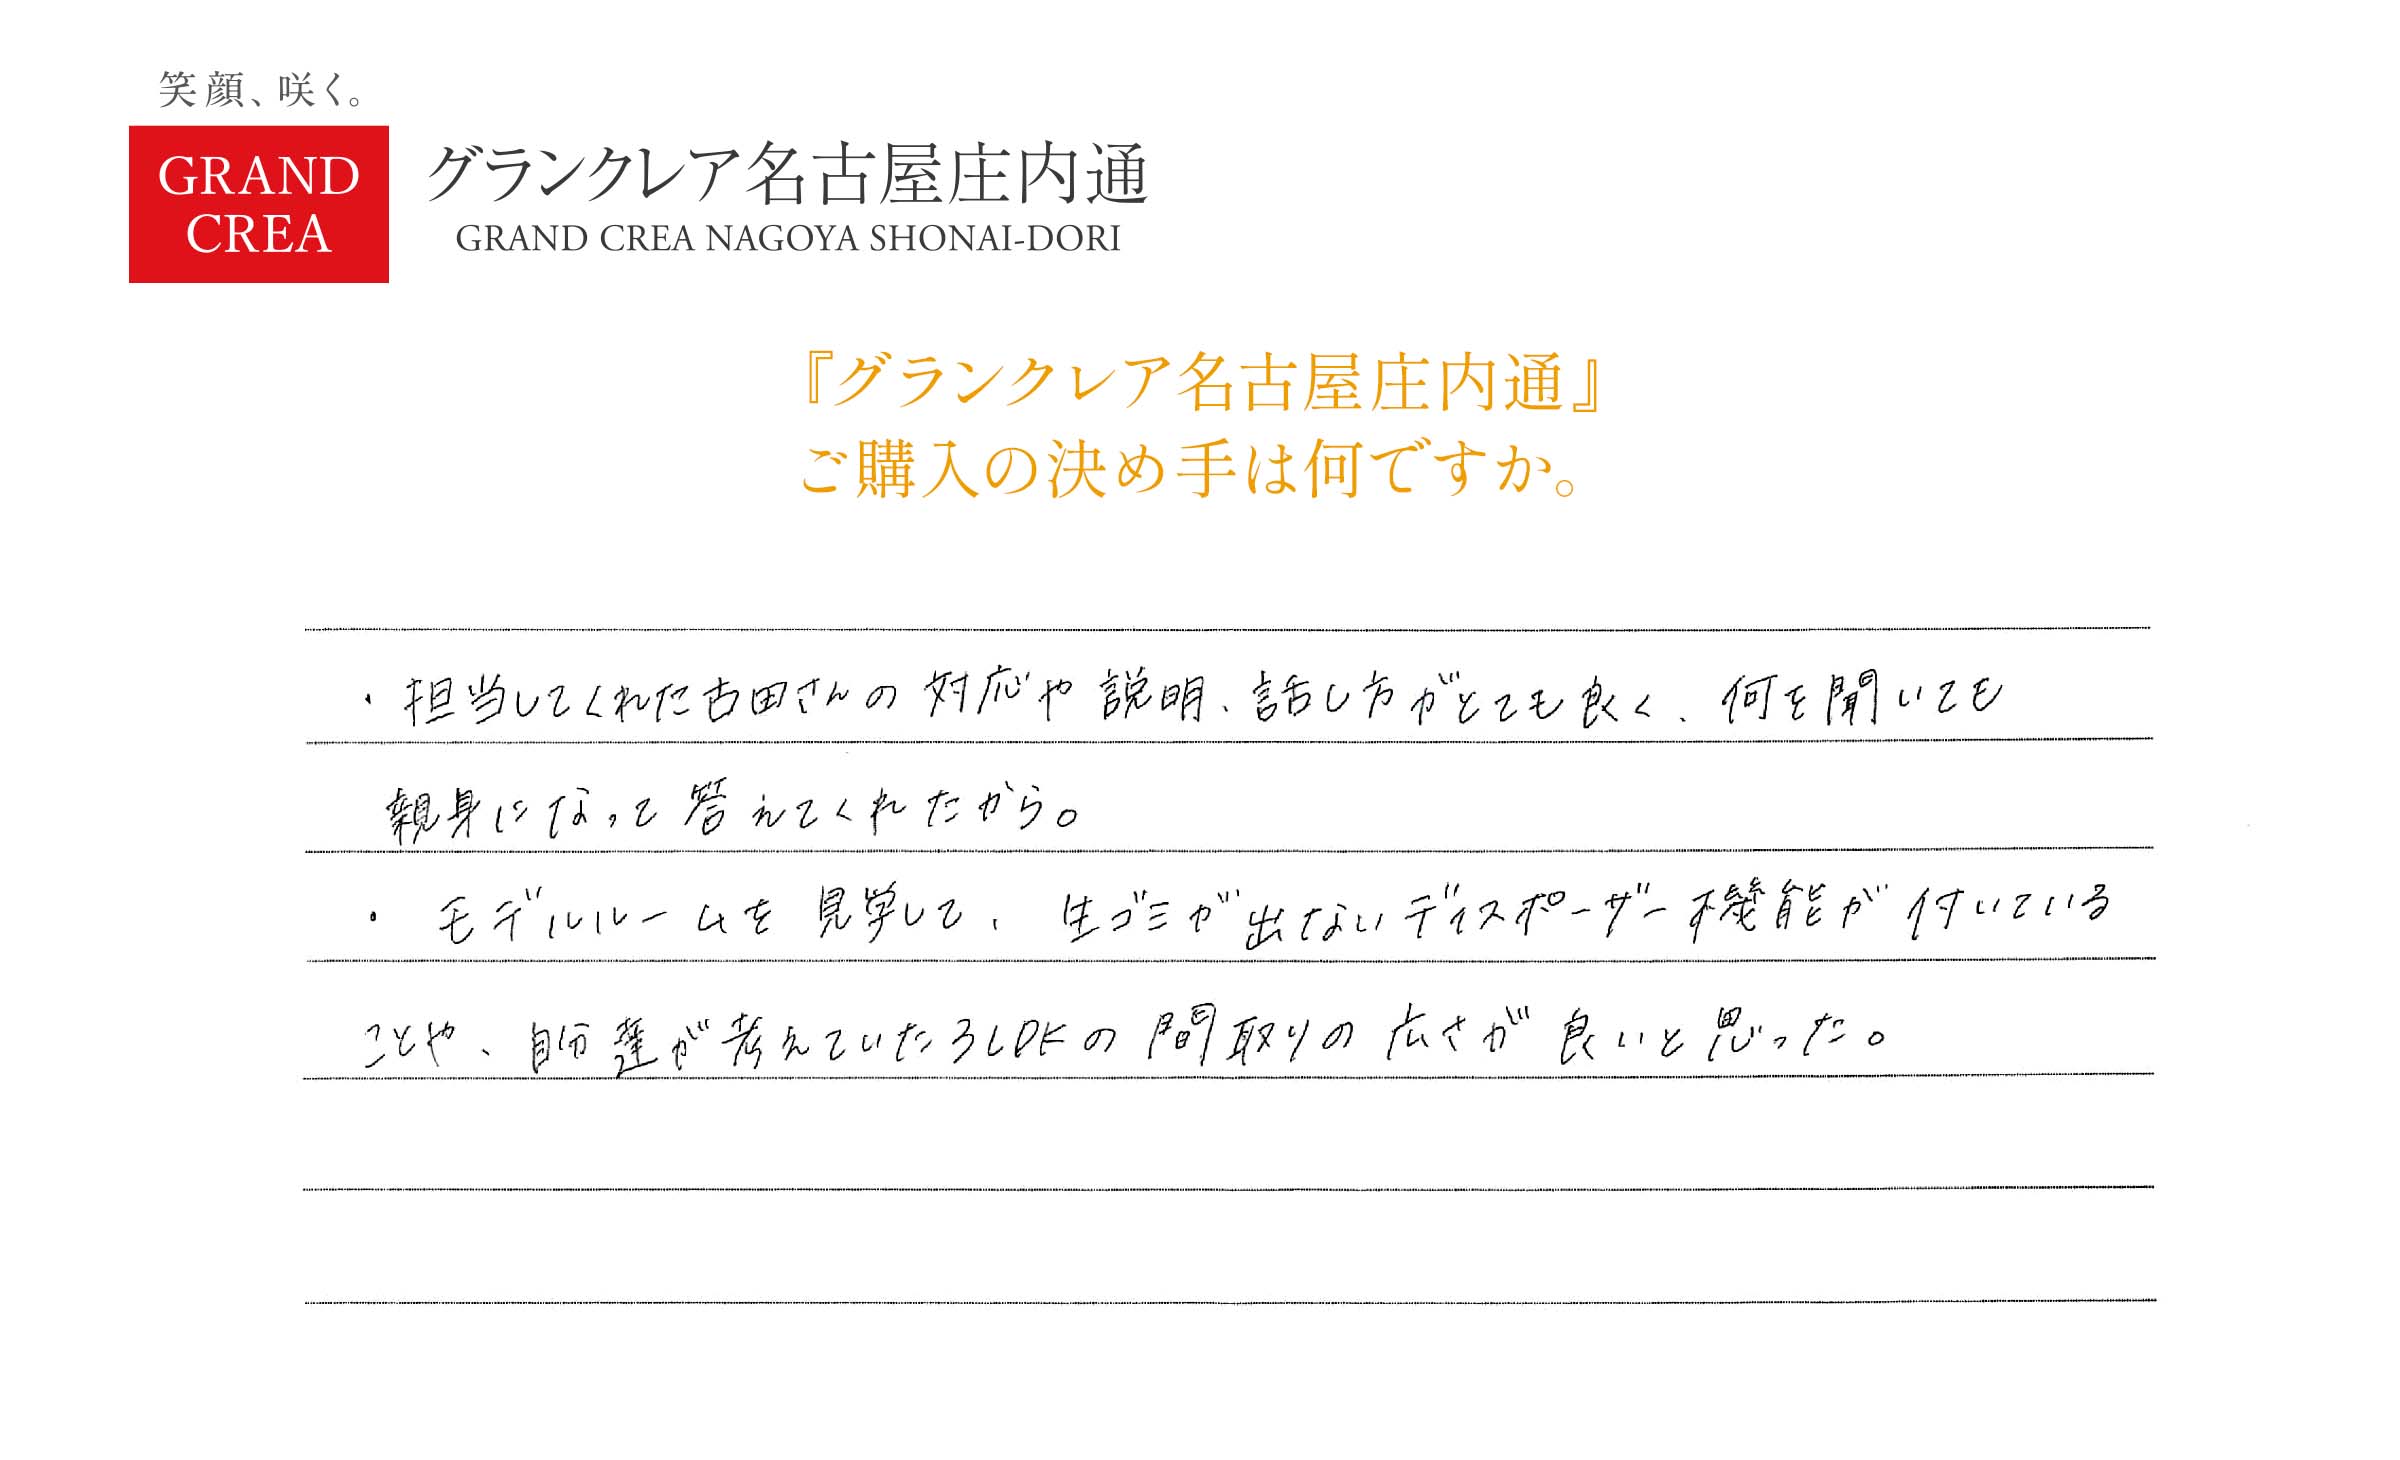 笑顔、咲く。
GRAND
CREA
グランクレア名古屋庄内通
GRAND CREA NAGOYA SHONAI-DORI
『グランクレア名古屋庄内通』
ご購入の決め手は何ですか。
・担当してくれた古田さんの対応や説明、話し方がとても良く、何を聞いても
親身になって答えてくれたから。
・モデルルームを見学して、生ゴミが出ないディスポーザー機能が付いている
ことや、自分達が考えていた3LDKの間取りの広さが良いと思った。